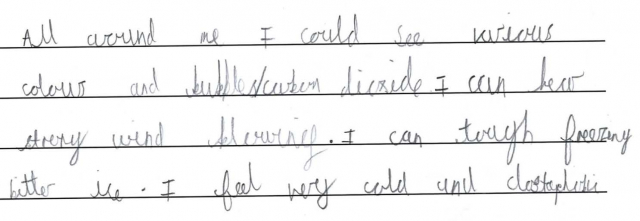 All around me I could see various
colours and bubbles/carbon dioxide I can hear
strong wind blowing. I can tough freezing
bitter ice. I feel very cold and